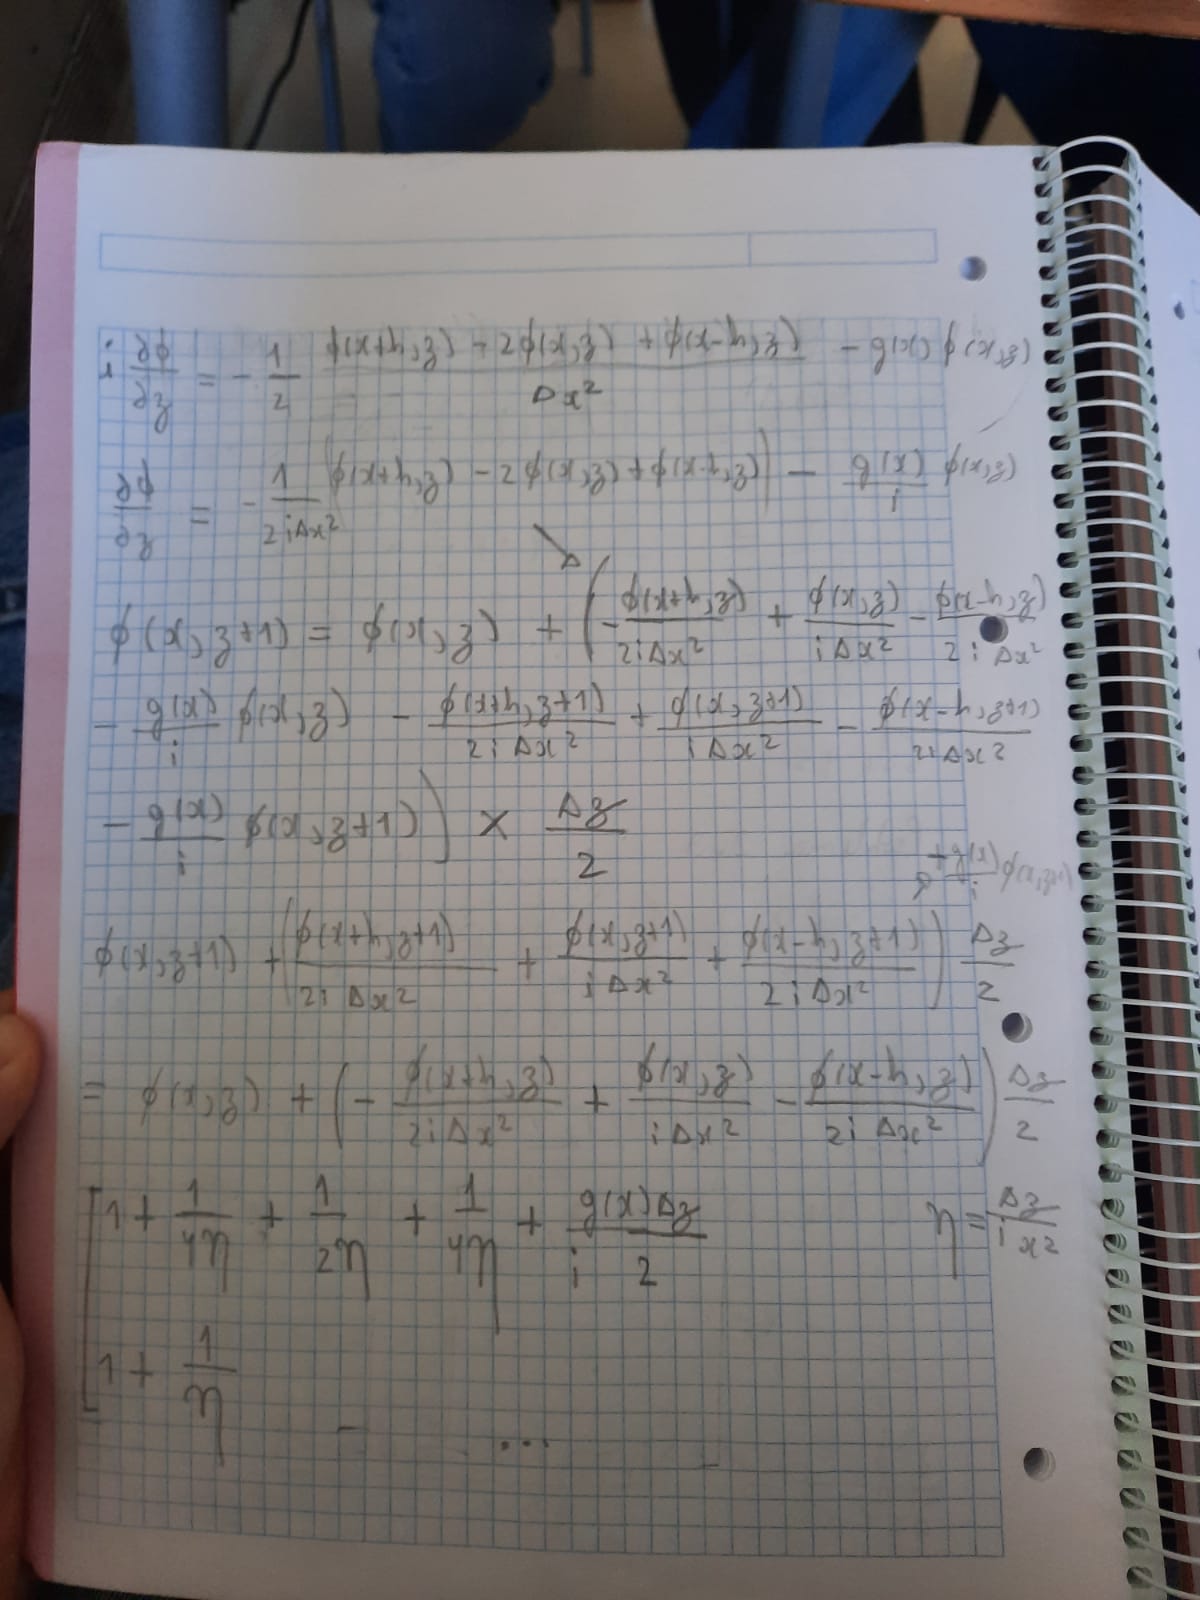 i ∂ϕ/∂z = - 1/2 (ϕ(x+h,z) - 2ϕ(x,z) + ϕ(x-h,z))/Δx² - g(x) ϕ(x,z)
∂ϕ/∂z = - 1/(2iΔx²) (ϕ(x+h,z) - 2ϕ(x,z) + ϕ(x-h,z)) - g(x)/i ϕ(x,z)
ϕ(x,z+1) = ϕ(x,z) + ( - ϕ(x+h,z)/(2iΔx²) + ϕ(x,z)/(iΔx²) - ϕ(x-h,z)/(2iΔx²)
- g(x)/i ϕ(x,z) - ϕ(x+h,z+1)/(2iΔx²) + ϕ(x,z+1)/(iΔx²) - ϕ(x-h,z+1)/(2iΔx²)
- g(x)/i ϕ(x,z+1) ) × Δz/2
+ g(x)/i ϕ(x,z+1)
ϕ(x,z+1) + ( ϕ(x+h,z+1)/(2iΔx²) + ϕ(x,z+1)/(iΔx²) + ϕ(x-h,z+1)/(2iΔx²) ) Δz/2
= ϕ(x,z) + ( - ϕ(x+h,z)/(2iΔx²) + ϕ(x,z)/(iΔx²) - ϕ(x-h,z)/(2iΔx²) ) Δz/2
[ 1 + 1/(4η) + 1/(2η) + 1/(4η) + g(x)Δz/(i 2) η = Δz/(i x²)
1 + 1/η - ...